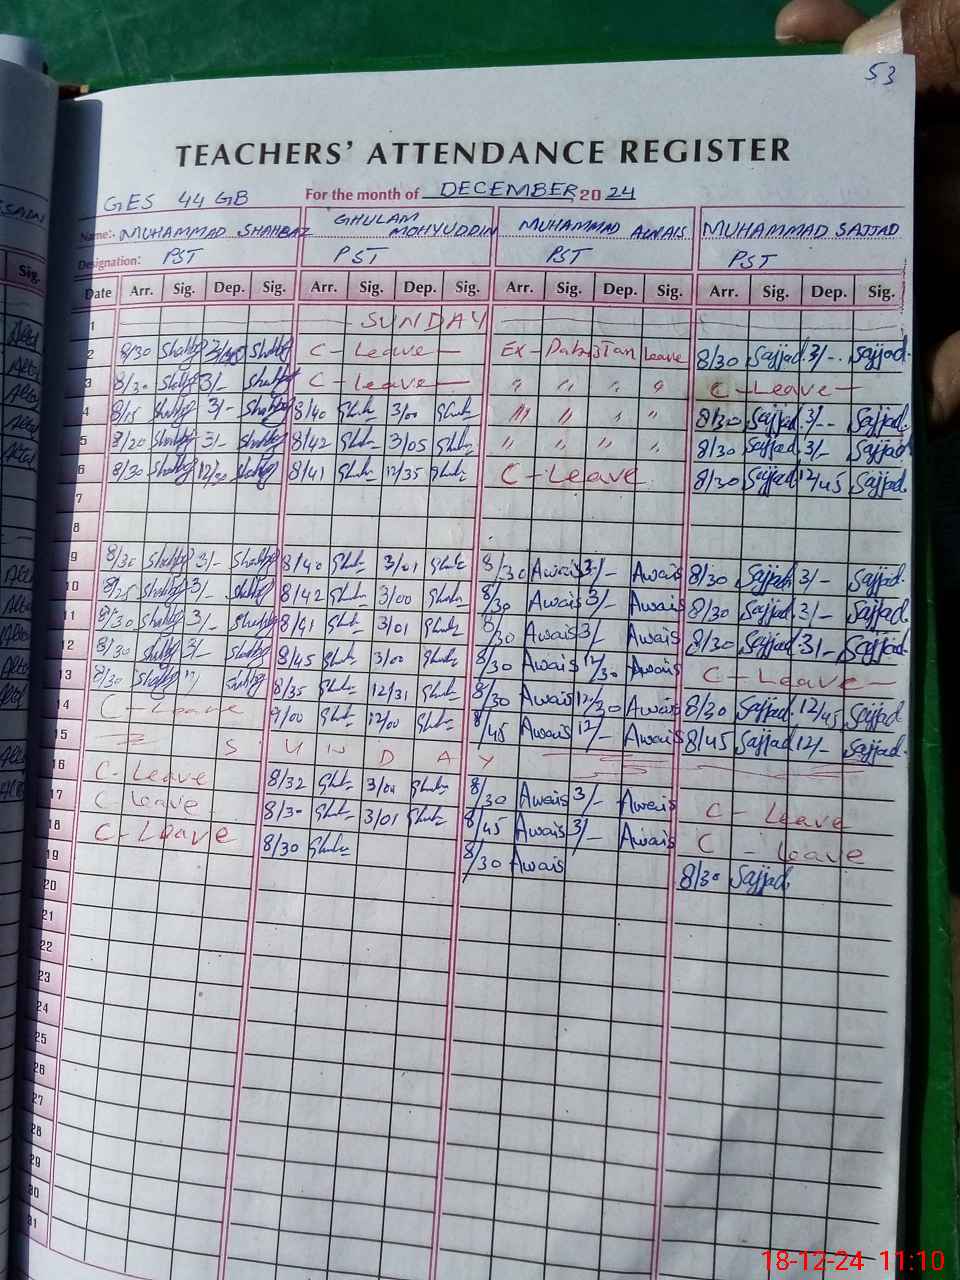 53
TEACHERS' ATTENDANCE REGISTER
GES 44 GB For the month of DECEMBER 2024
Name:- MUHAMMAD SHAHBAZ GHULAM MOHYUDDIN MUHAMMAD AWAIS MUHAMMAD SAJJAD
Designation: PST PST PST PST
Date Arr. Sig. Dep. Sig. Arr. Sig. Dep. Sig. Arr. Sig. Dep. Sig. Arr. Sig. Dep. Sig.
1 SUNDAY
2 8/30 C-Leave Ex-Pakistan Leave 8/30 Sajjad 3/- Sajjad
3 8/30 3/- C-Leave " " " " C-Leave
4 8/15 3/- 8/40 3/00 " " " " 8/30 Sajjad 3/- Sajjad
5 8/20 3/- 8/42 3/05 " " " " 8/30 Sajjad 3/- Sajjad
6 8/30 12/30 8/41 12/35 C-Leave 8/30 Sajjad 12/45 Sajjad
7
8
9 8/30 3/- 8/40 3/01 8/30 Awais 3/- Awais 8/30 Sajjad 3/- Sajjad
10 8/25 3/- 8/42 3/00 8/30 Awais 3/- Awais 8/30 Sajjad 3/- Sajjad
11 8/30 3/- 8/41 3/01 8/30 Awais 3/- Awais 8/30 Sajjad 3/- Sajjad
12 8/30 3/- 8/45 3/00 8/30 Awais 12/30 Awais C-Leave
13 8/30 8/35 12/31 8/30 Awais 12/30 Awais 8/30 Sajjad 12/45 Sajjad
14 C-Leave 9/00 12/00 8/45 Awais 12/- Awais 8/45 Sajjad 12/- Sajjad
15 SUNDAY
16 C-Leave 8/32 3/00 8/30 Awais 3/- Awais C-Leave
17 C-Leave 8/30 3/01 8/45 Awais 3/- Awais C Leave
18 C-Leave 8/30 8/30 Awais 8/30 Sajjad
19
20
21
22
23
24
25
26
27
28
29
30
31
18-12-24 11:10